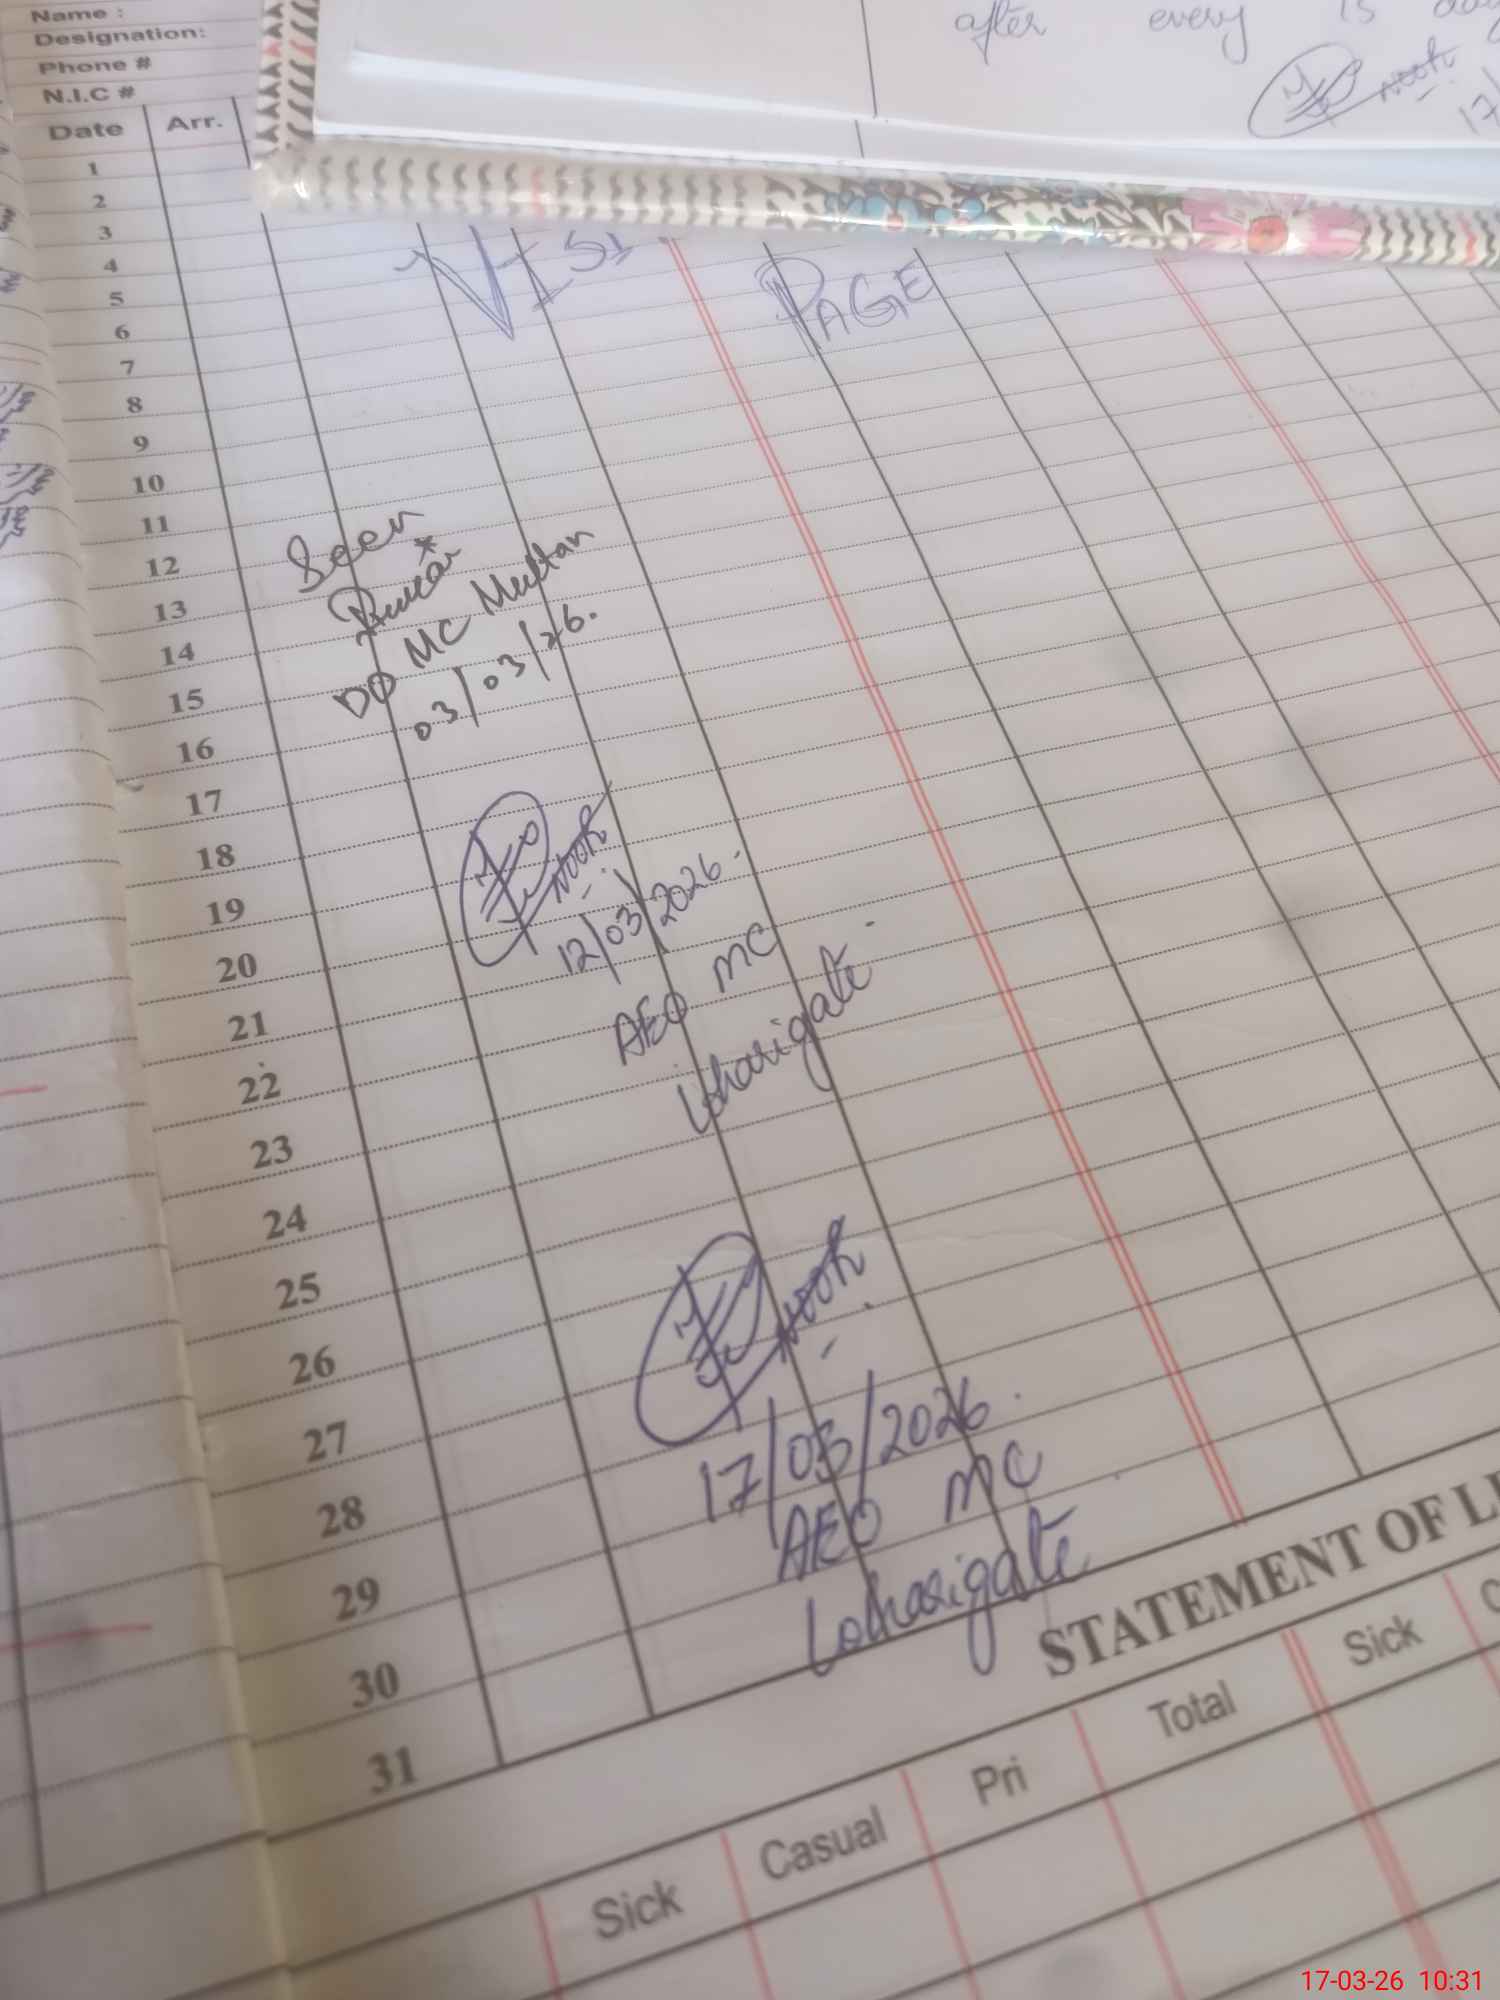 Name :
Designation:
Phone #
N.I.C #
Date Arr.
after every 15
17/
1
2
3
4
5
6
7
8
9
10
11
12
13
14
15
16
17
18
19
20
21
22
23
24
25
26
27
28
29
30
31
VISI PAGE
Seen
DO MC Multan
03/03/26.
12/03/2026.
AEO MC
Loharigate.
17/03/2026.
AEO MC
Loharigate
STATEMENT OF
Sick Casual Pri Total Sick
17-03-26 10:31